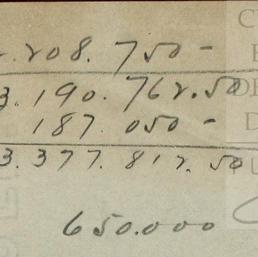 .208.750-
3.190.762.50
187.050-
3.377.812.50
650.000